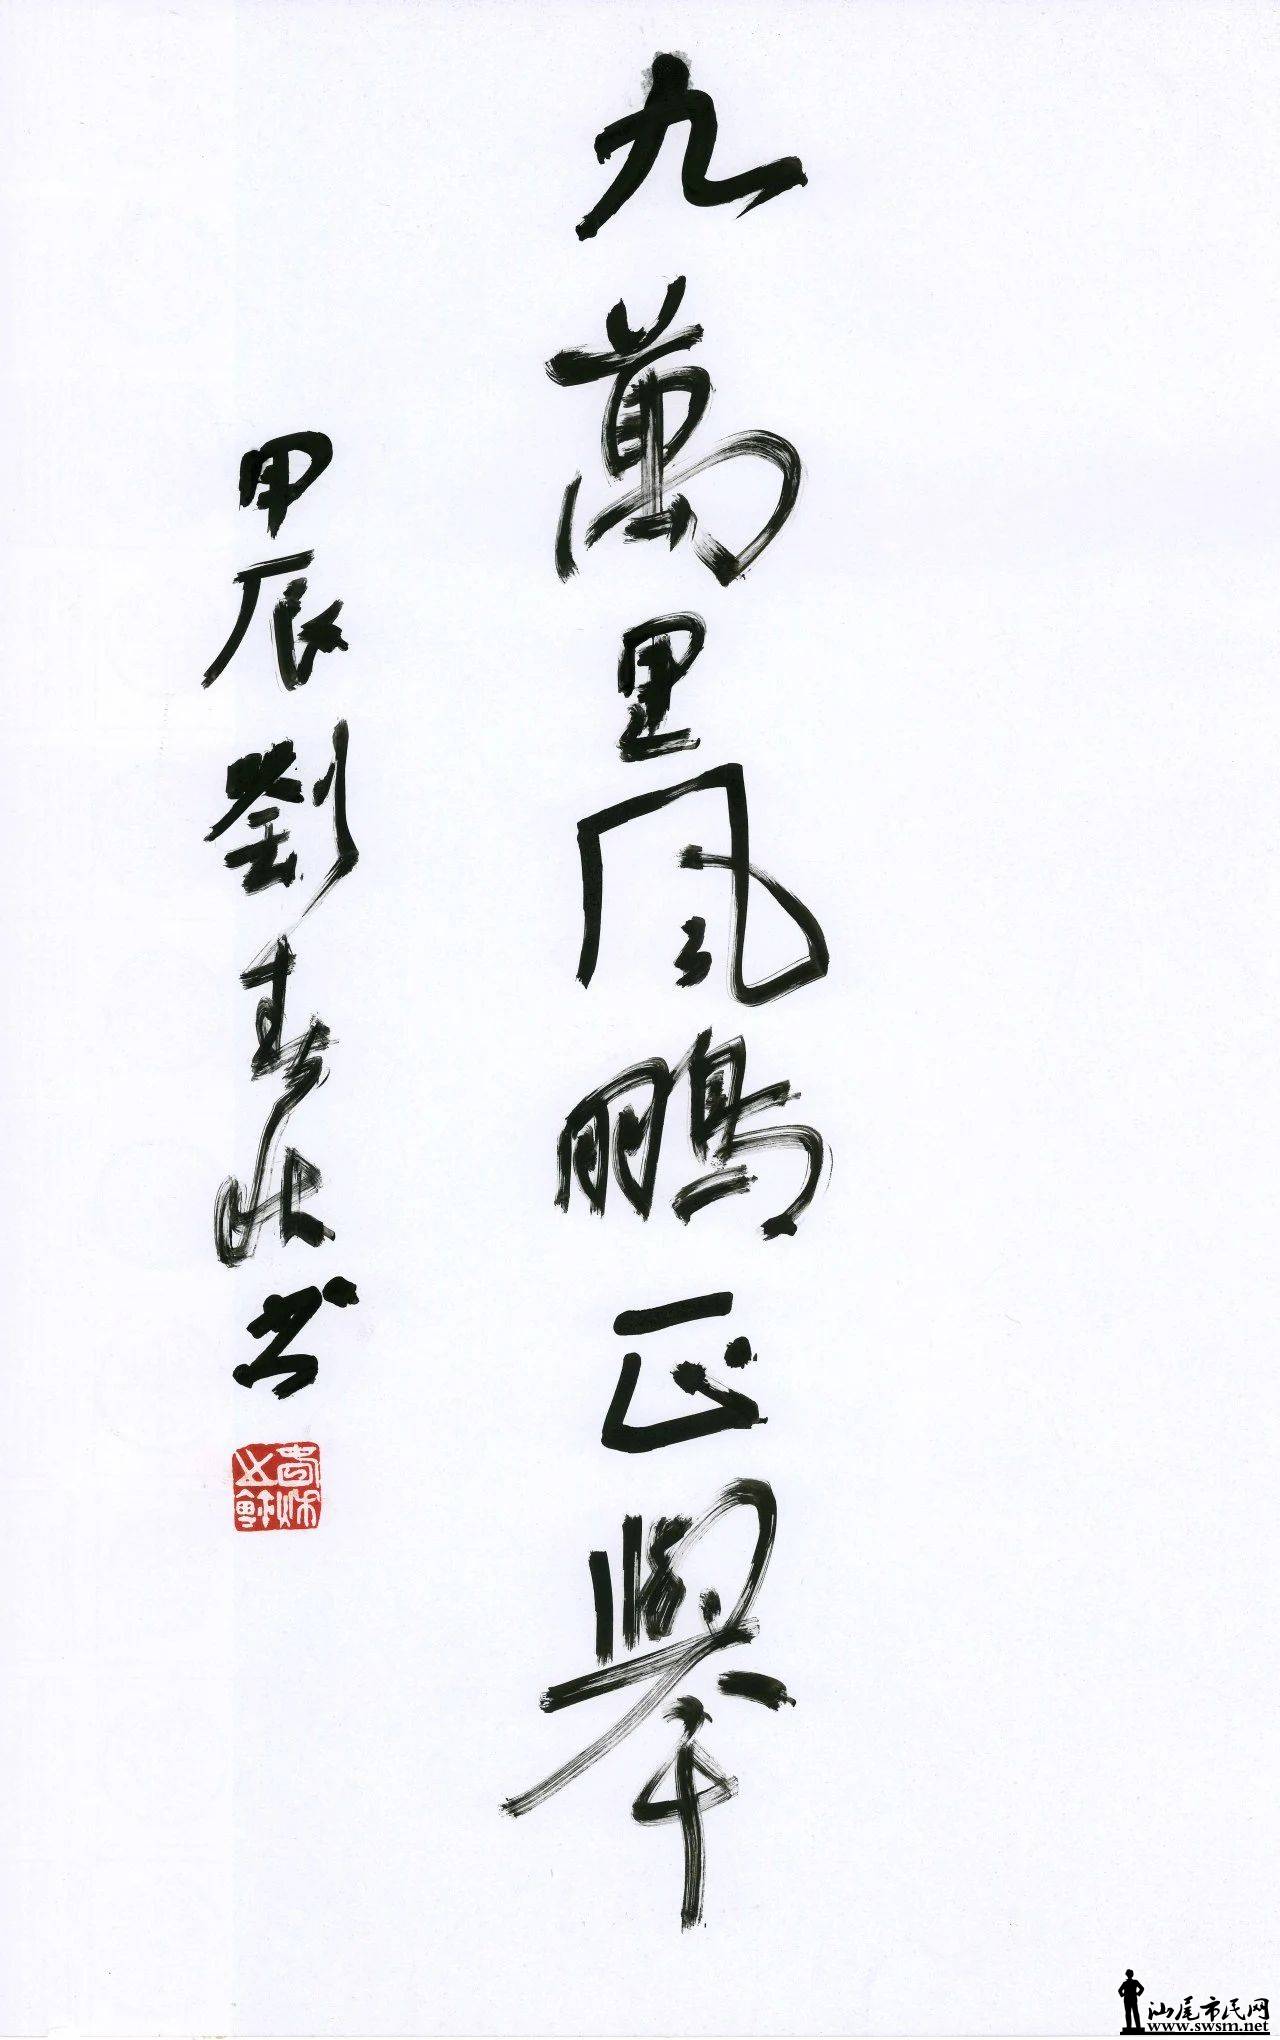 九萬里風鵬正舉
甲辰劉春
书
汕尾市民网
www.swsm.net